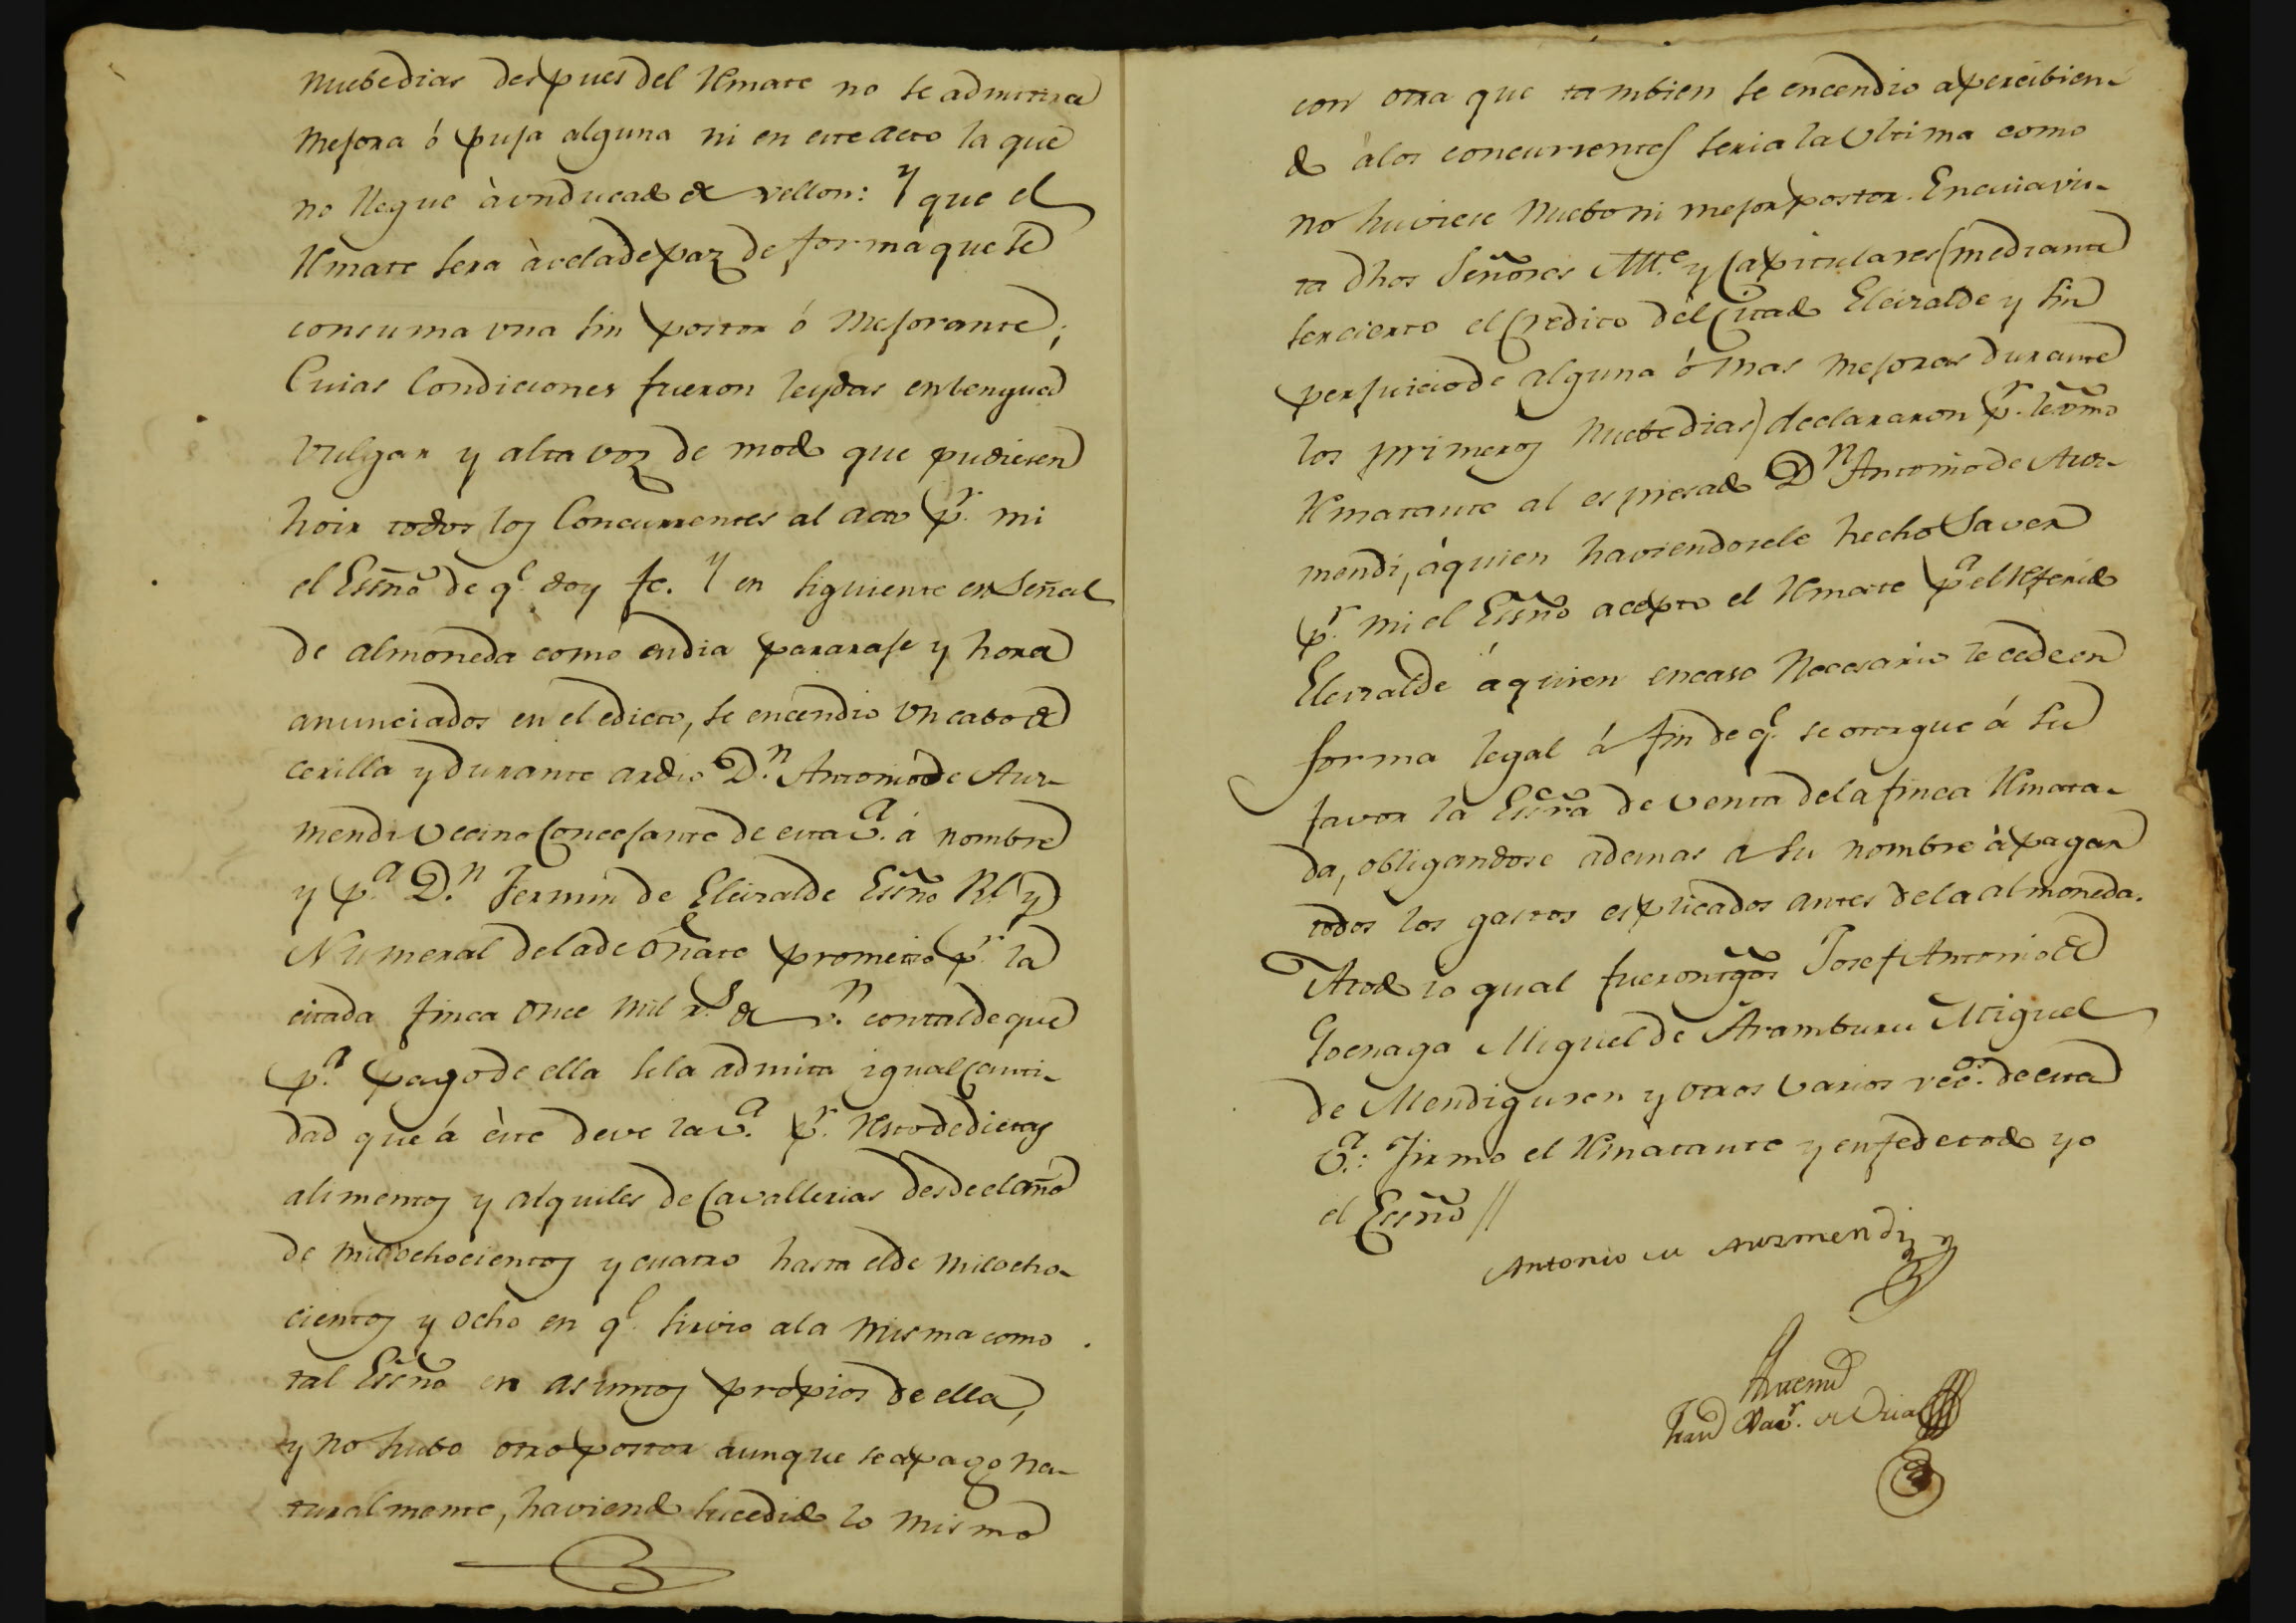 nuebe dias despues del Remate no se admitira
mejora ó puja alguna ni en este acto la que
no llegue à un ducado de vellon: Y que el
Remate sera à vela de paz de forma que se
consuma una sin postor ó mejorante;
Cuias Condiciones fueron leydas en lengua
vulgar y alta voz de modo que pudiesen
hoir todos los Concurrentes al acto pr. mi
el Essno de qe. doy fe. Y en siguiente en Señal
de almoneda como en dia pararaje y hora
anunciados en el edicto, se encendio un cabo de
cerilla y durante ardio Dn. Antonio de Auz-
mendi vecino Concejante de esta va. á nombre
y pa. Dn. Fermin de Eleizalde Essno Rl. y
Numeral de la de Oñate prometio pr. la
citada finca once mil rs. de vn. con tal de que
pa. pago de ella se la admita igual Canti-
dad que á éste deve la va. pr. Resto de dietas
alimentos y alquiles de Cavallerias desde el año
de mil ochocientos y cuatro hasta el de mil ocho-
cientos y ocho en qe. sirvio a la misma como
tal Essno en asuntos propios de ella,
y no hubo otro postor aunque se apago na-
turalmente, haviendo sucedido lo mismo
con otra que tambien se encendio apercibien-
do á los concurrentes seria la Ultima como
no huviese nuebo ni mejor postor. En cuia vis-
ta dhos Señores Alle. y Capitulares (mediante
ser cierto el Credito del Citado Eleizalde y sin
perjuicio de alguna ó mas mejoras durante
los primeros nuebe dias) declararon pr. lexmo
Rematante al espresado Dn Antonio de Auz-
mendi, á quien haviendosele hecho Saver
pr. mi el Essno acepto el Remate pa. el Referido
Eleizalde á quien en caso Necesario le cede en
forma legal á fin de qe. se otorgue á su
favor la Escra de venta de la finca Remata-
da, obligandose ademas a su nombre à pagar
todos los gastos esplicados antes de la almoneda.
A todo lo qual fueron tgos Josef Antonio de
Goenaga Miguel de Aramburu Miguel
de Mendiguren y otros varios vecos. de esta
va.: Firmo el Rematante y en fe de todo yo
el Essno //
Antonio de Auzmendi
Ante mi
Franco Xavr. de